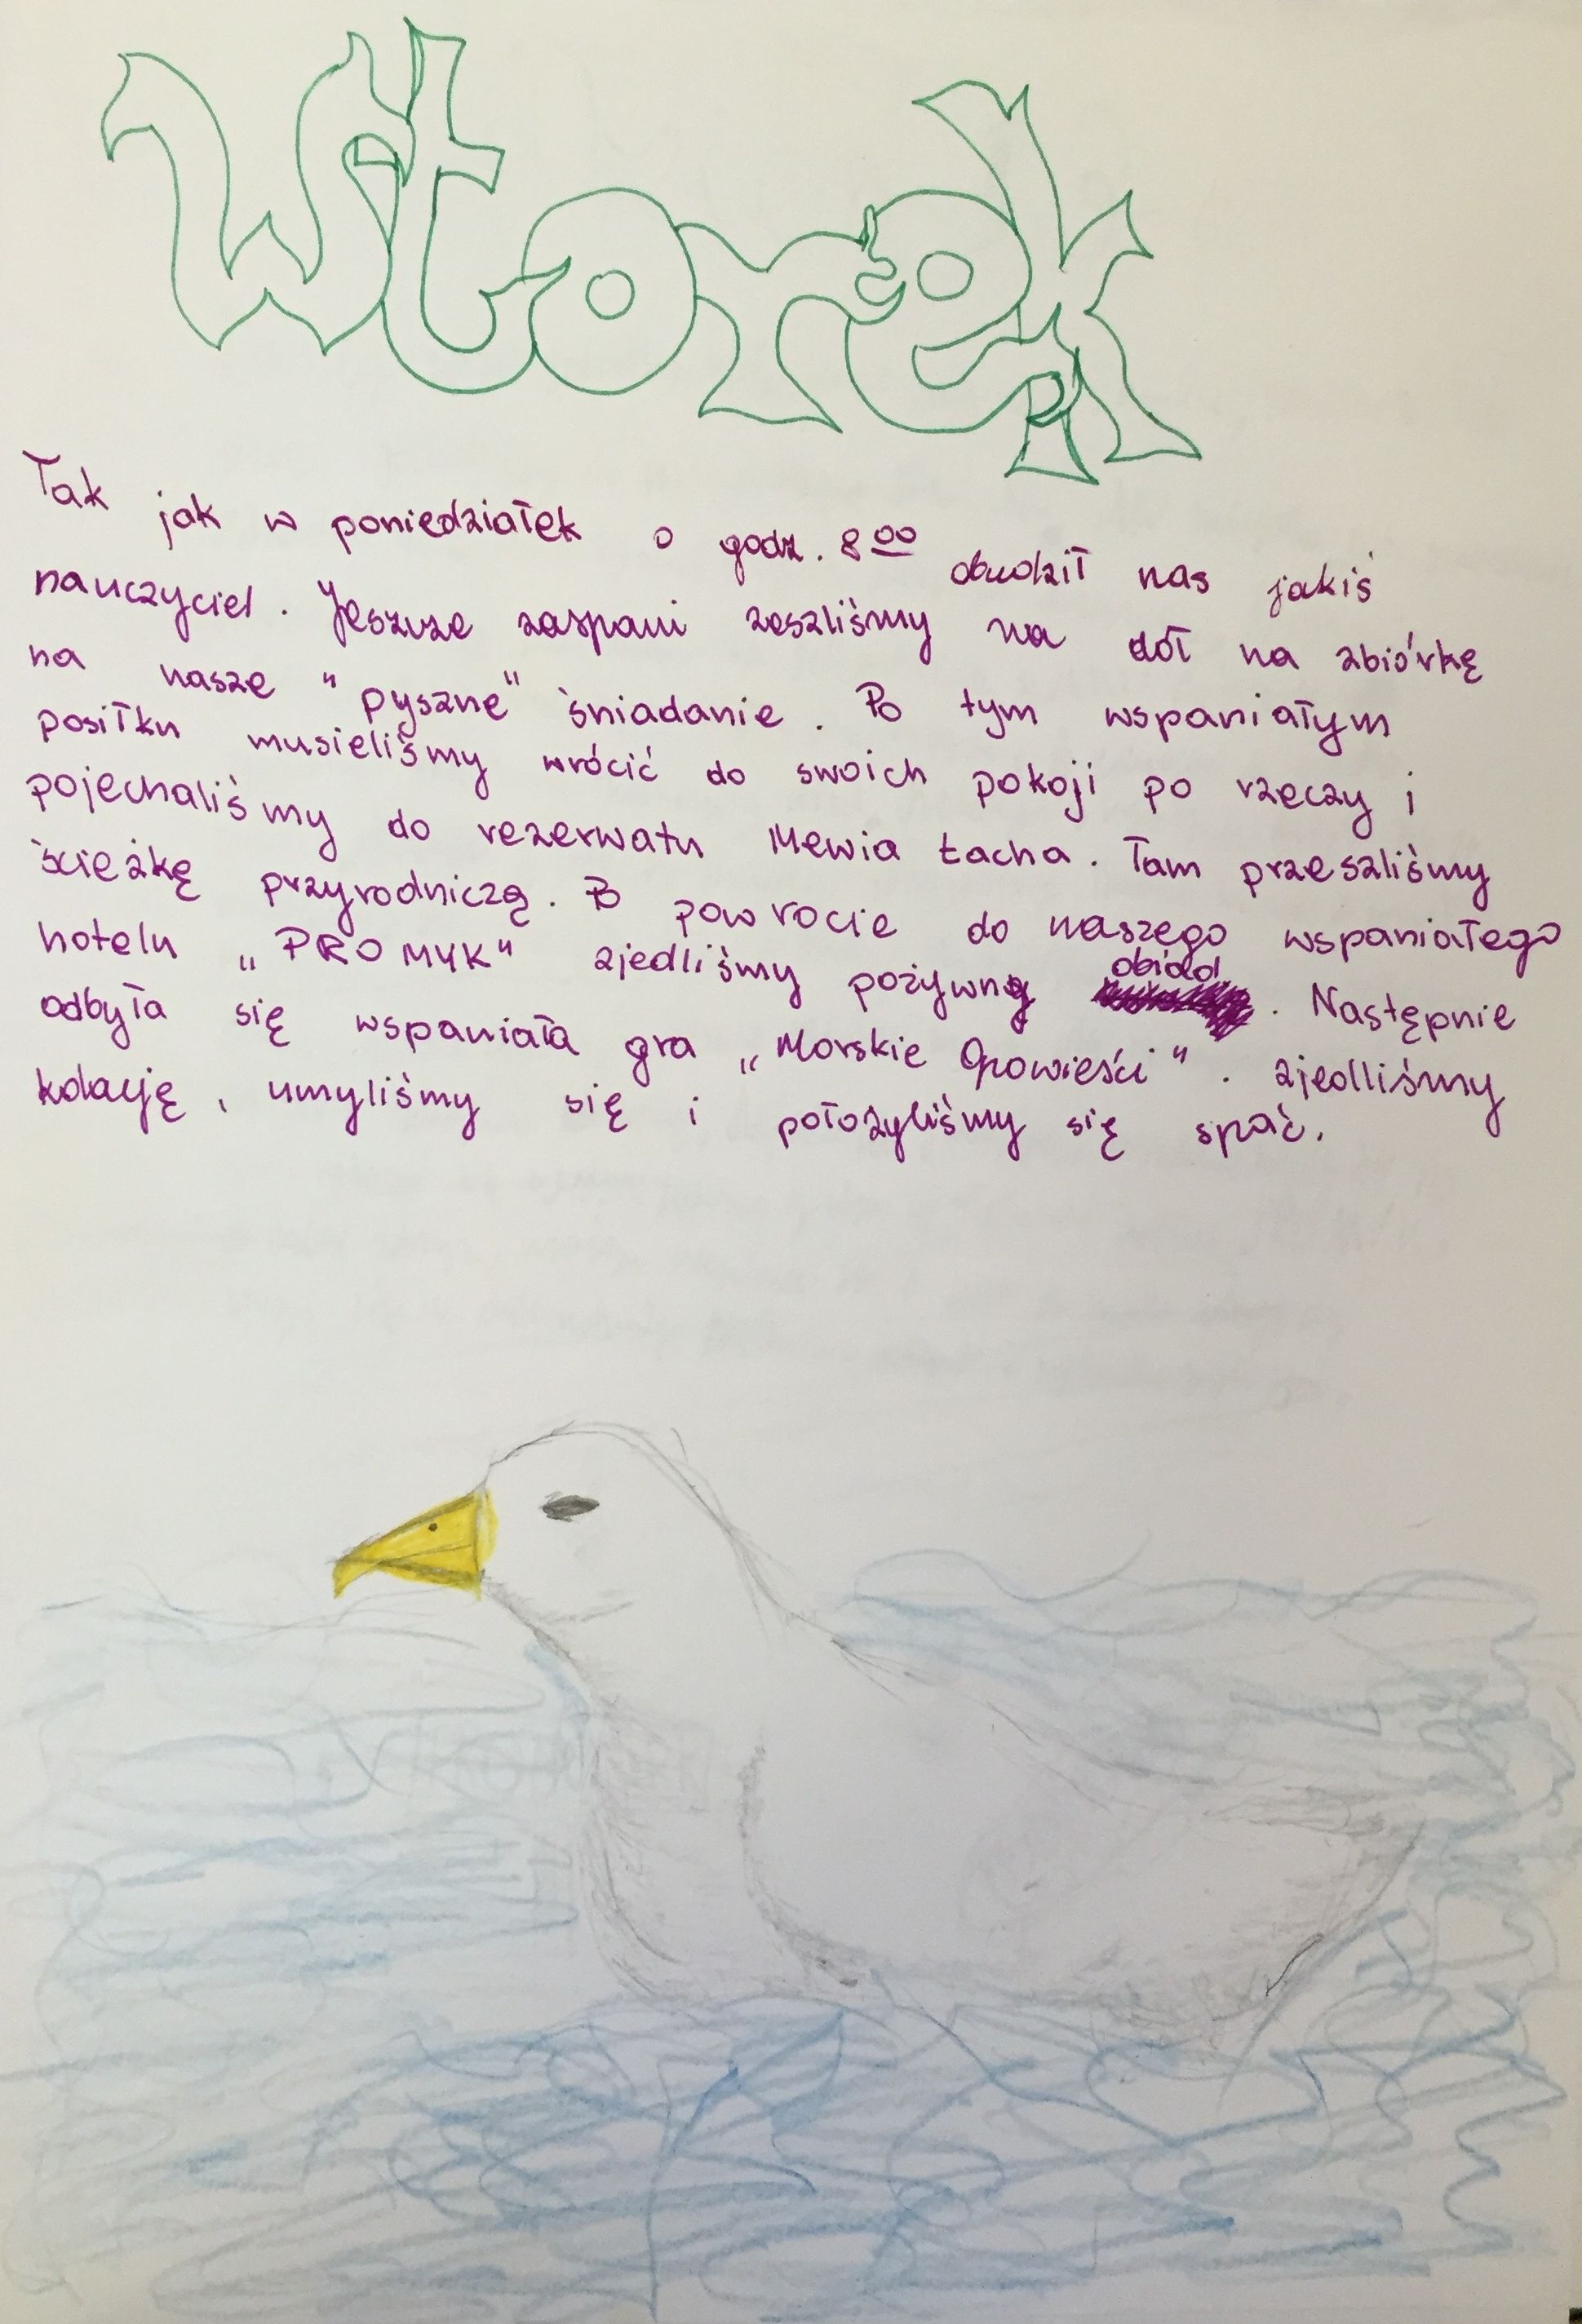 Wtorek
Tak jak w poniedziałek o godz. 8⁰⁰ obudził nas jakiś
nauczyciel. Jeszcze zaspani zeszliśmy na dół na zbiórkę
na nasze "pyszne" śniadanie. Po tym wspaniałym
posiłku musieliśmy wrócić do swoich pokoji po rzeczy i
pojechaliśmy do rezerwatu Mewia Łacha. Tam przeszliśmy
ścieżkę przyrodniczą. Po powrocie do naszego wspaniałego
hotelu „PROMYK" zjedliśmy pożywny obiad. Następnie
odbyła się wspaniała gra „Morskie Opowieści". zjedliśmy
kolację, umyliśmy się i położyliśmy się spać.